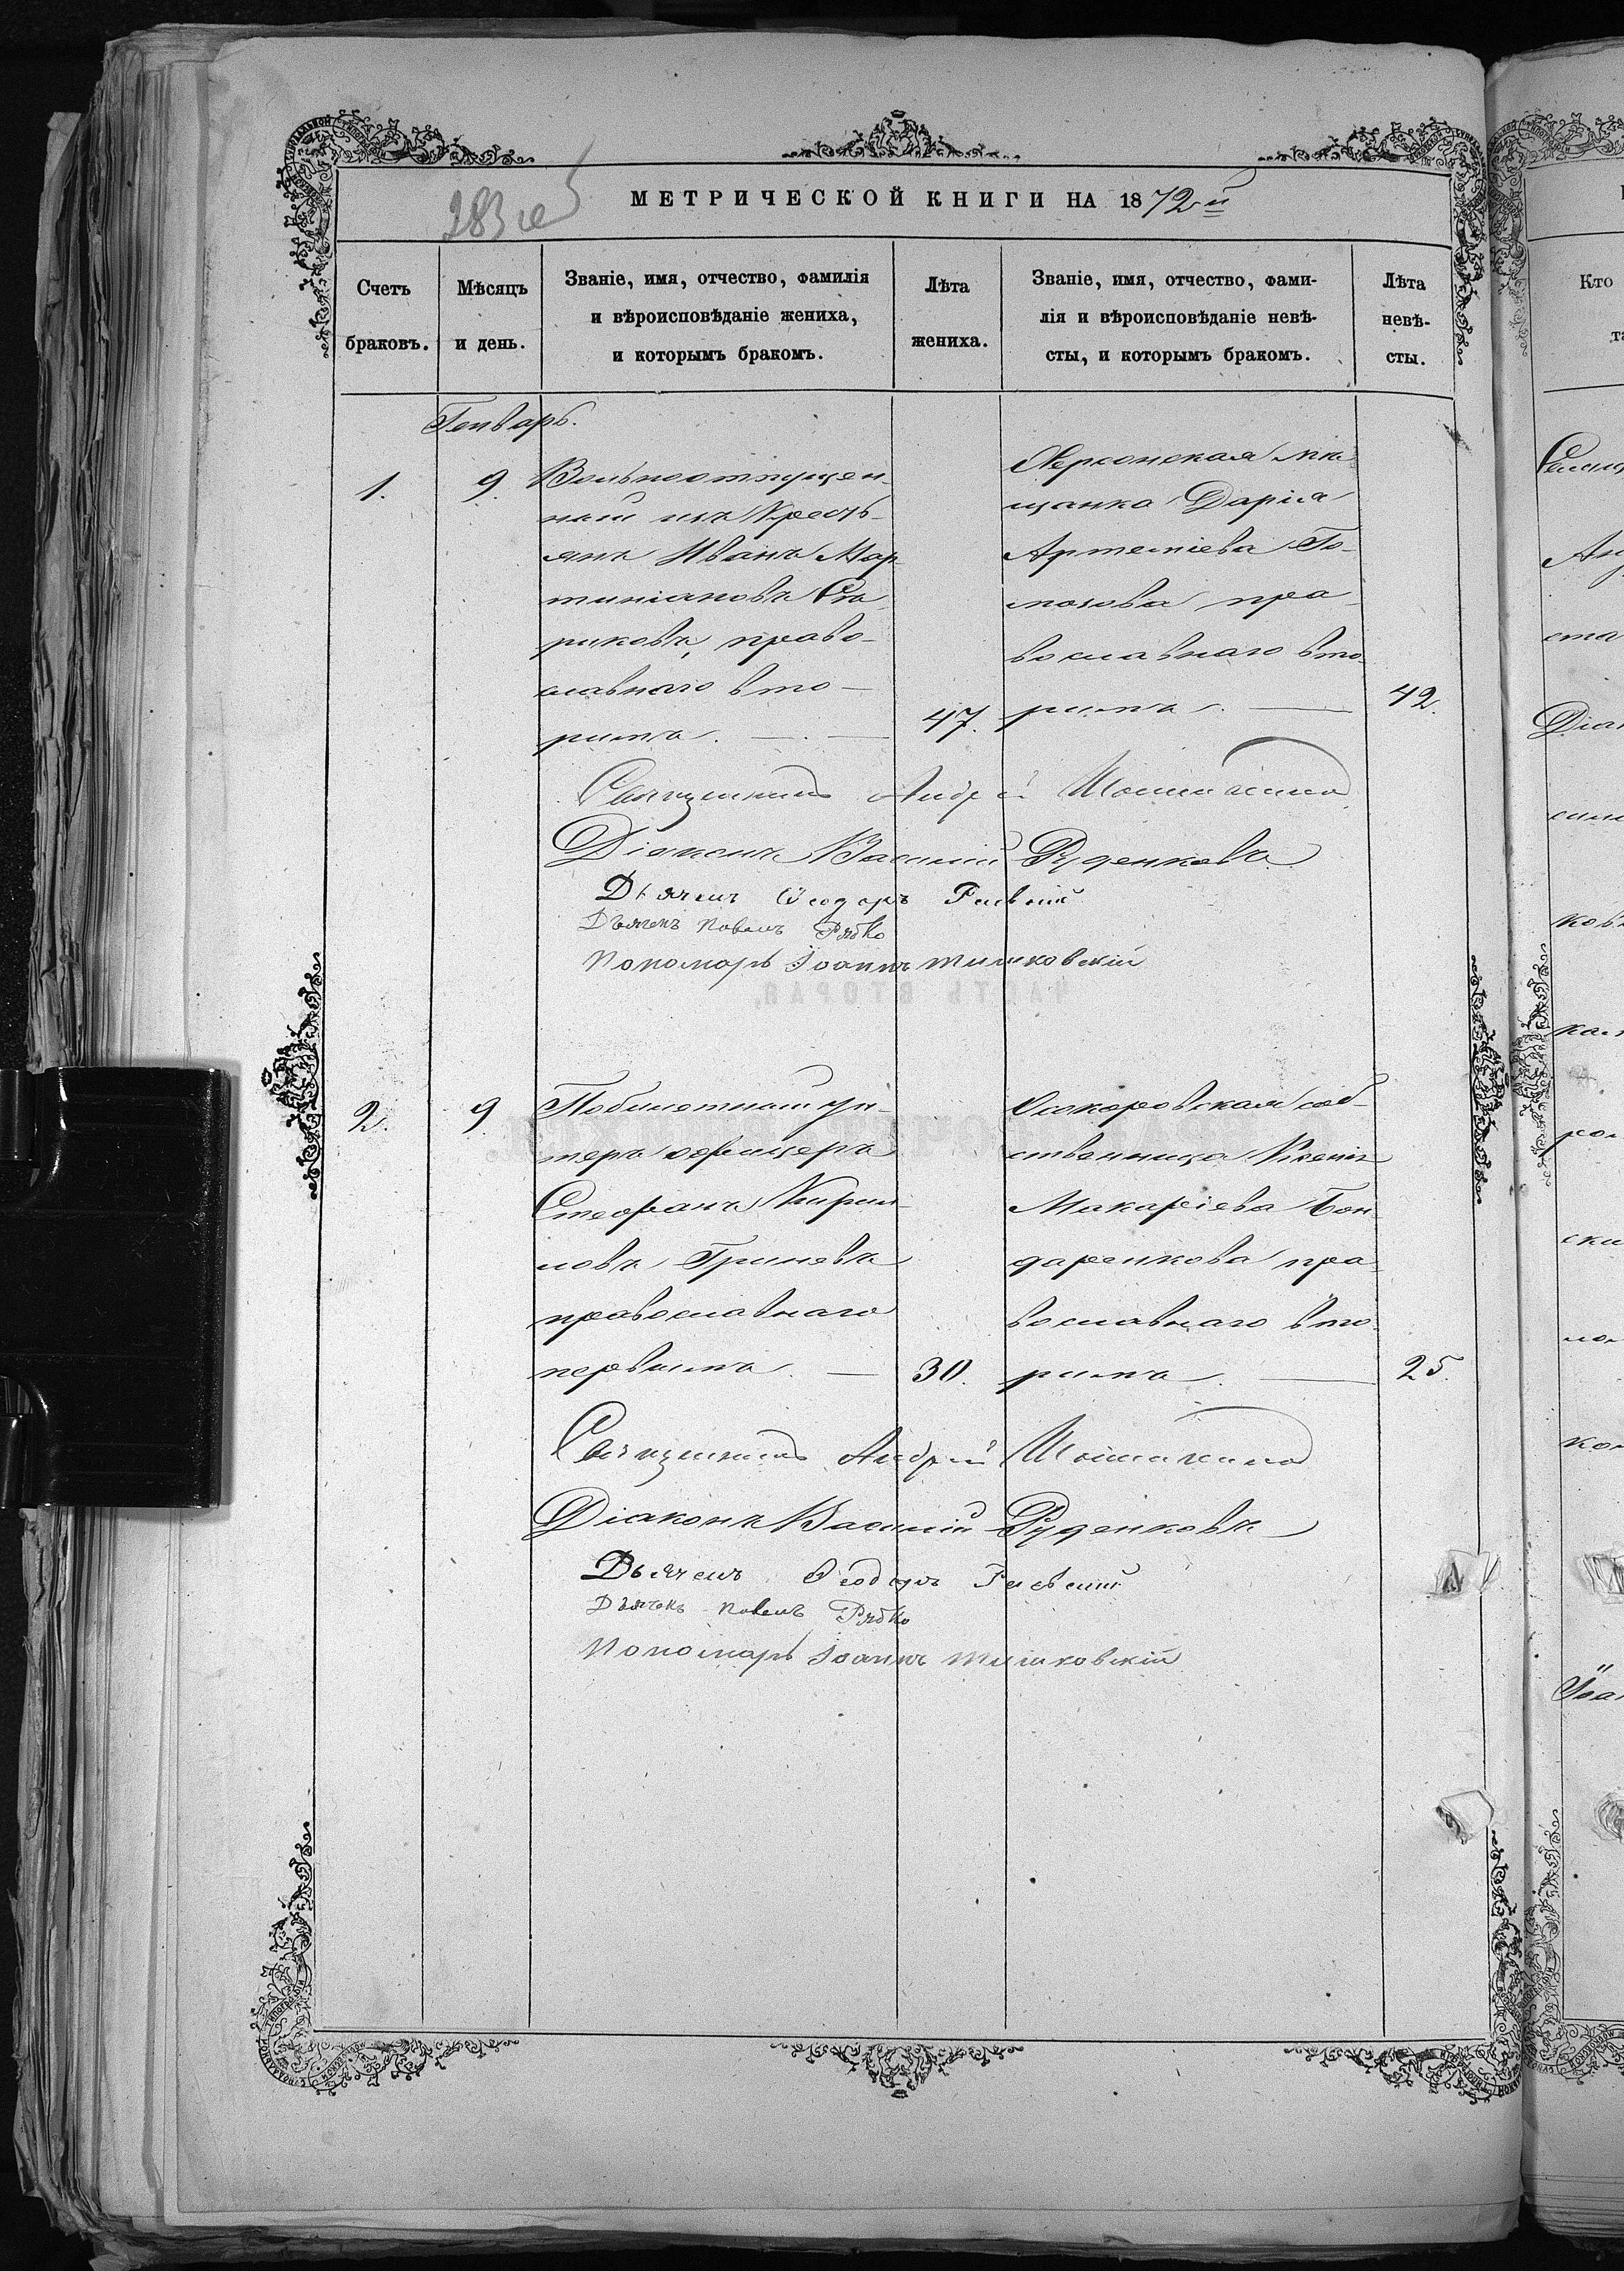 МЕТРИЧЕСКОЙ КНИГИ НА 1872й
Счетъ браковъ.
Мѣсяцъ и день.
Званіе, имя, отчество, фамилія
и вѣроисповѣданіе жениха,
и которымъ бракомъ.
Лѣта жениха.
Званіе, имя, отчество, фами-
лія и вѣроисповѣданіе невѣ-
сты, и которымъ бракомъ.
Лѣта невѣ-
сты.
Генварь.
1.
9.
Вольноотпущен-
ный изъ Кресть-
янъ Иванъ Мар-
тиніановъ Ста-
риковъ, право-
славнаго вто-
рымъ.
47.
Херсонская мѣ-
щанка Дарія
Артеміева
пра-
вославнаго вто-
рымъ.
42.
Священникъ Андрей
Діаконъ Василій Руденковъ
Дьячекъ Ѳеодоръ
Дьячекъ Павелъ Рябко
Пономарь Іоаннъ Тишковскій
2.
9.
Побилетный ун-
теръ офицеръ
Стефанъ Кирил-
ловъ Гриневъ
православнаго
первымъ.
30.
Осокоровская соб-
ственница Ксенія
Макаріева Бон-
даренкова пра-
вославнаго вто-
рымъ.
25.
Священникъ Андрей
Діаконъ Василій Руденковъ
Дьячекъ Ѳеодоръ
Дьячекъ Павелъ Рябко
Пономарь Іоаннъ Тишковскій
Кто